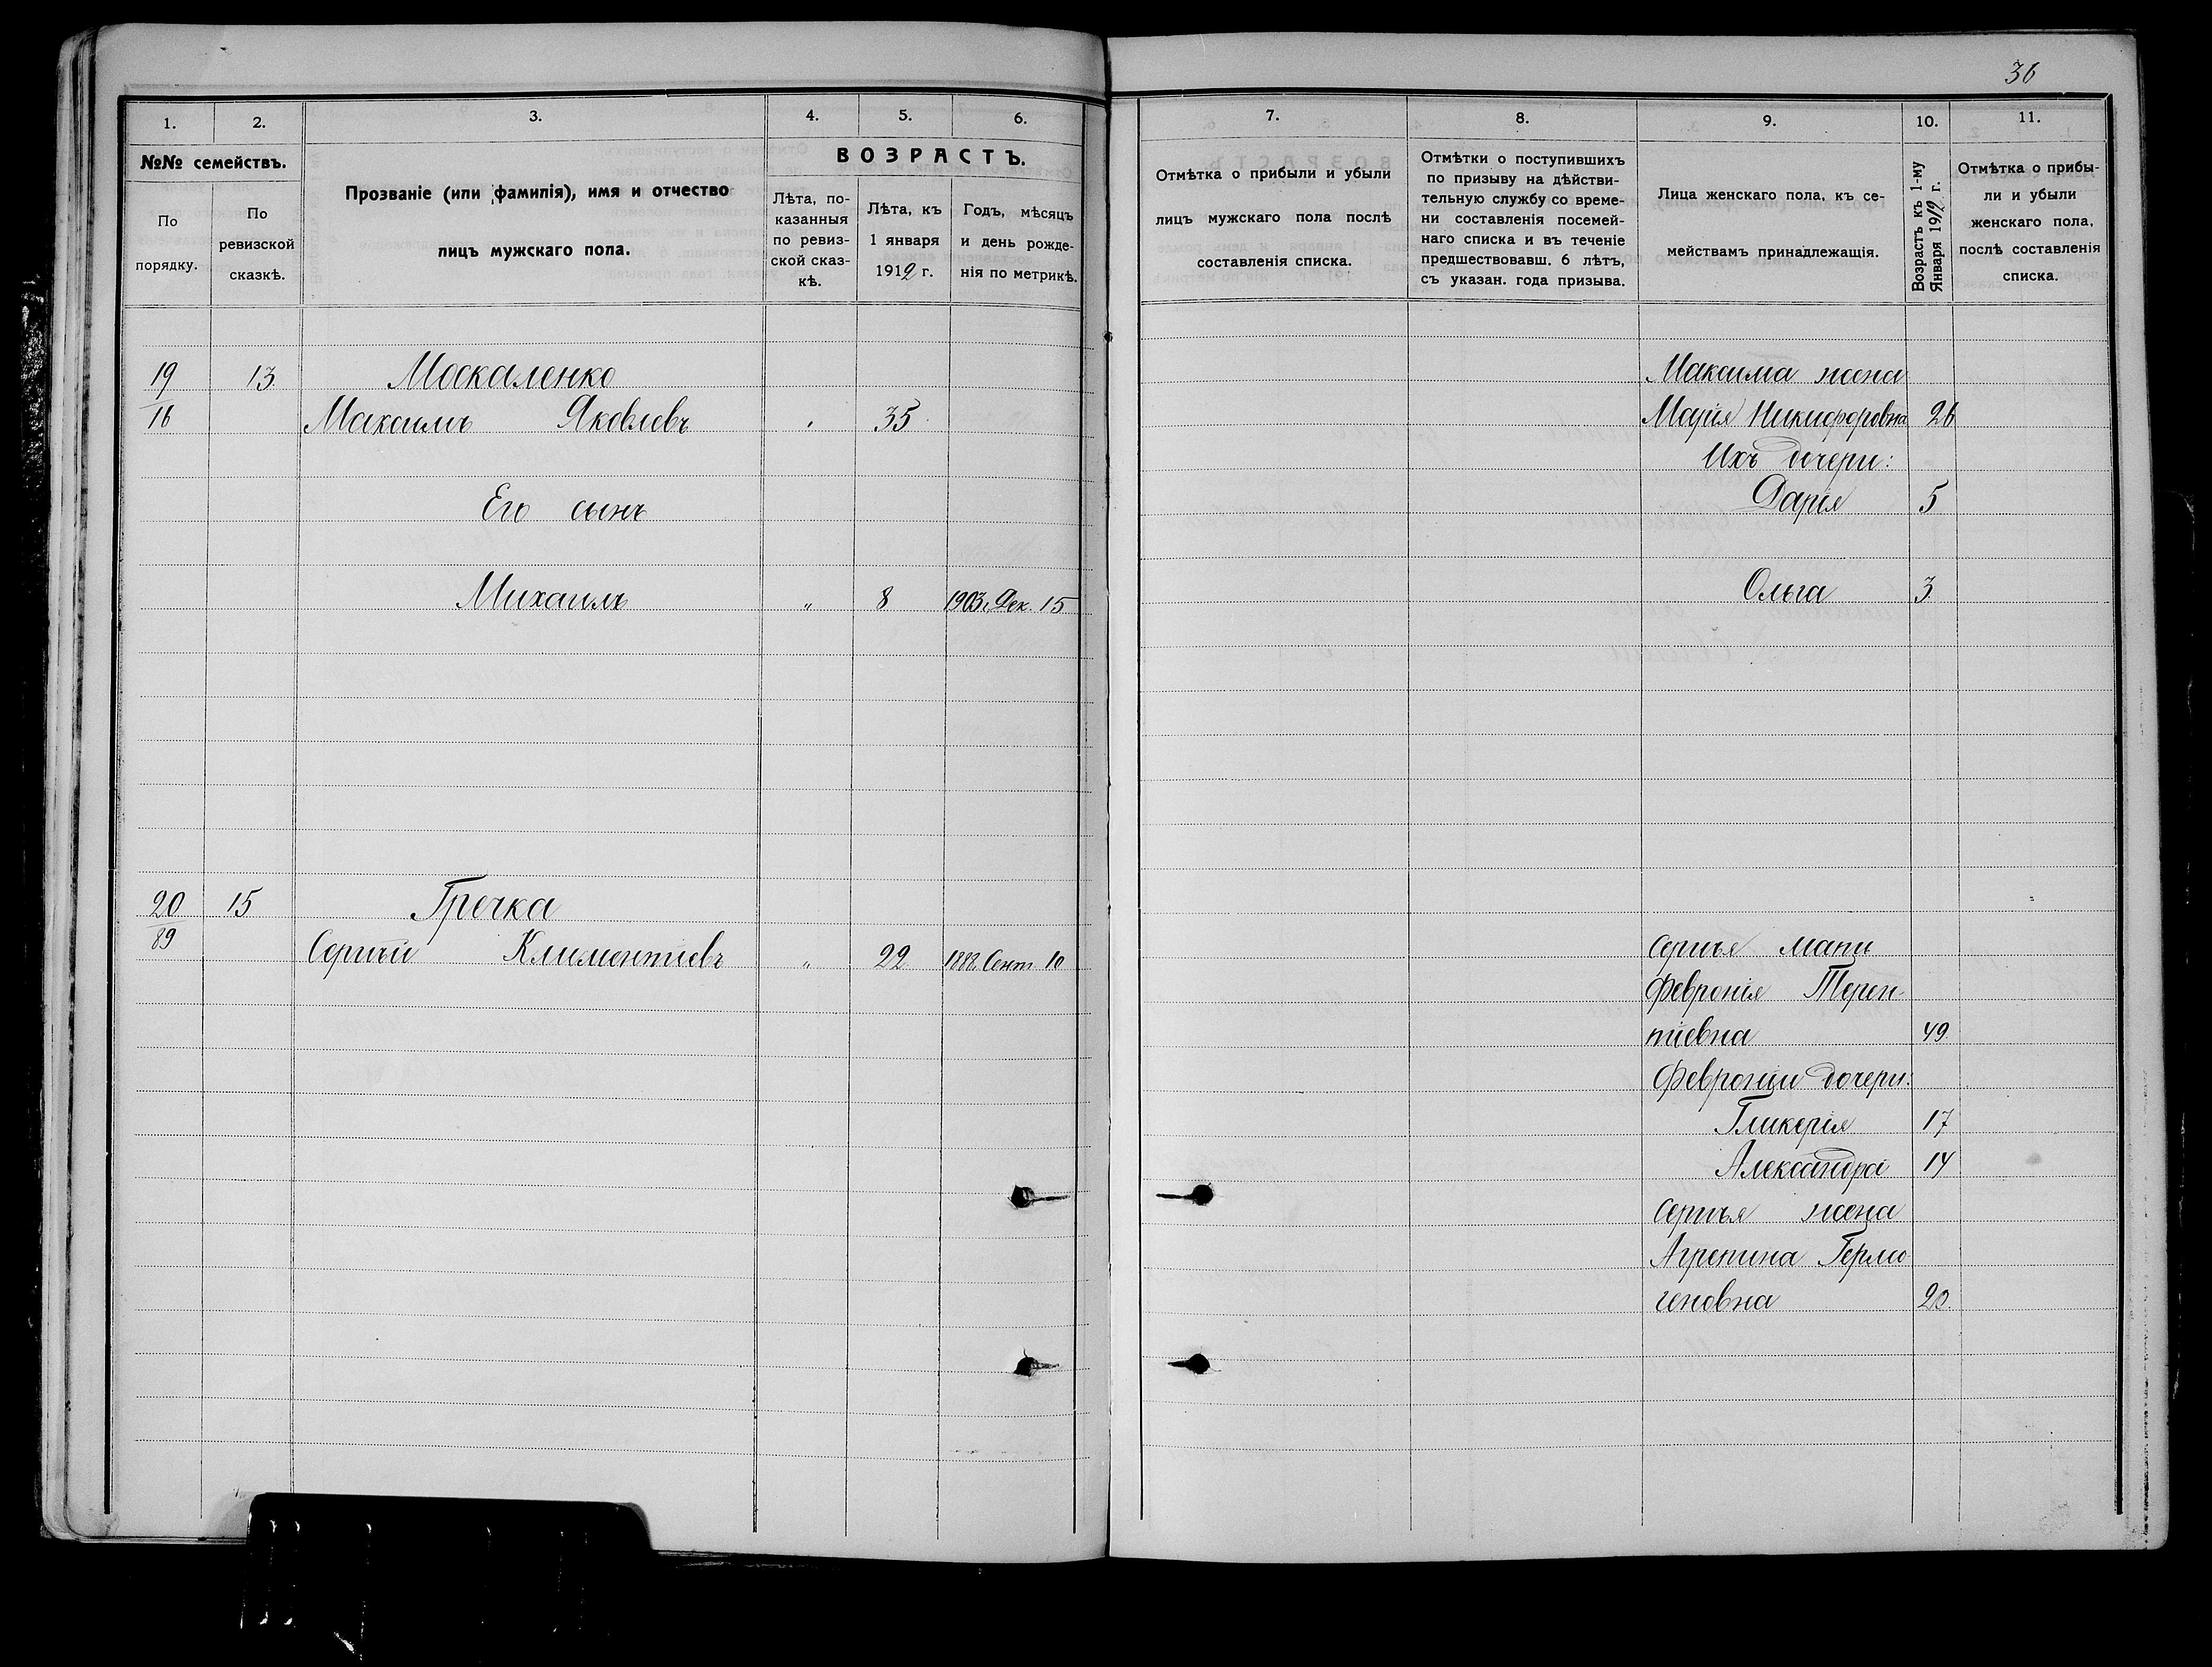 36
1. 2. 3. 4. 5. 6.
№№ семействъ.
По порядку.
По ревизской сказкѣ.
Прозваніе (или фамилія), имя и отчество
лицъ мужскаго пола.
ВОЗРАСТЪ.
Лѣта, по-
казанныя
по ревиз-
ской сказ-
кѣ.
Лѣта, къ
1 января
1912 г.
Годъ, мѣсяцъ
и день рожде-
нія по метрикѣ.
19 13 Москаленко
16 Максимъ Яковлевъ " 35
Его сынъ
Михаилъ " 8 1903 г. Дек. 15
20 15 Гречка
89 Сергѣй Климентіевъ " 22 Сент. 10
7. 8. 9. 10. 11.
Отмѣтка о прибыли и убыли
лицъ мужскаго пола послѣ
составленія списка.
Отмѣтки о поступившихъ
по призыву на дѣйстви-
тельную службу со време-
ни составленія посемей-
наго списка и въ теченіе
предшествовавш. 6 лѣтъ,
съ указан. года призыва.
Лица женскаго пола, къ се-
мействамъ принадлежащія.
Возрастъ къ 1-му
Января 1912 г.
Отмѣтка о прибы-
ли и убыли
женскаго пола,
послѣ составленія
списка.
Максима жена
Марія Никифоровна 26
Ихъ дочери:
Дарія 5
Ольга 3
Сергѣя мать
Февронія Терен-
тіевна 49
Февроніи дочери:
Гликерія 17
Александра 14
Сергѣя жена
Агрепина Гермо
геновна 20